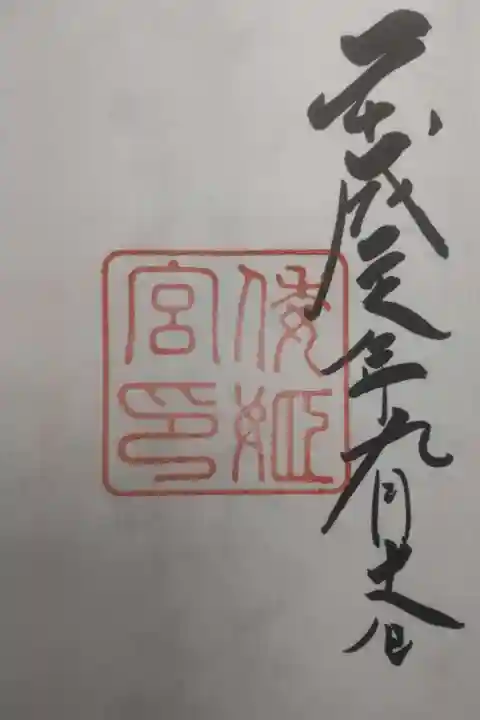 平成年九月日
倭姫
宮印